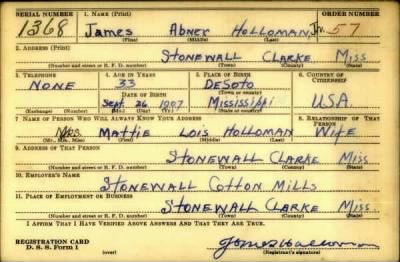 SERIAL NUMBER 1. NAME (Print) ORDER NUMBER
1368 James Abner Holloman, Jr. 57
(First) (Middle) (Last)
2. ADDRESS (Print)
Stonewall Clarke Miss
(Number and street or R. F. D. number) (Town) (County) (State)
3. TELEPHONE 4. AGE IN YEARS 5. PLACE OF BIRTH 6. COUNTRY OF CITIZENSHIP
None 33 DeSoto
(Town or county)
DATE OF BIRTH
Sept. 26 1907 Mississippi U.S.A.
(Exchange) (Number) (Mo.) (Day) (Yr.) (State or country)
7. NAME OF PERSON WHO WILL ALWAYS KNOW YOUR ADDRESS 8. RELATIONSHIP OF THAT PERSON
Mrs. Mattie Lois Holloman Wife
(Mr., Mrs., Miss) (First) (Middle) (Last)
9. ADDRESS OF THAT PERSON
Stonewall Clarke Miss
(Number and street or R. F. D. number) (Town) (County) (State)
10. EMPLOYER'S NAME
Stonewall Cotton Mills
11. PLACE OF EMPLOYMENT OR BUSINESS
Stonewall Clarke Miss.
(Number and street or R. F. D. number) (Town) (County) (State)
I AFFIRM THAT I HAVE VERIFIED ABOVE ANSWERS AND THAT THEY ARE TRUE.
REGISTRATION CARD
D. S. S. Form 1 (over) (Registrant's signature)